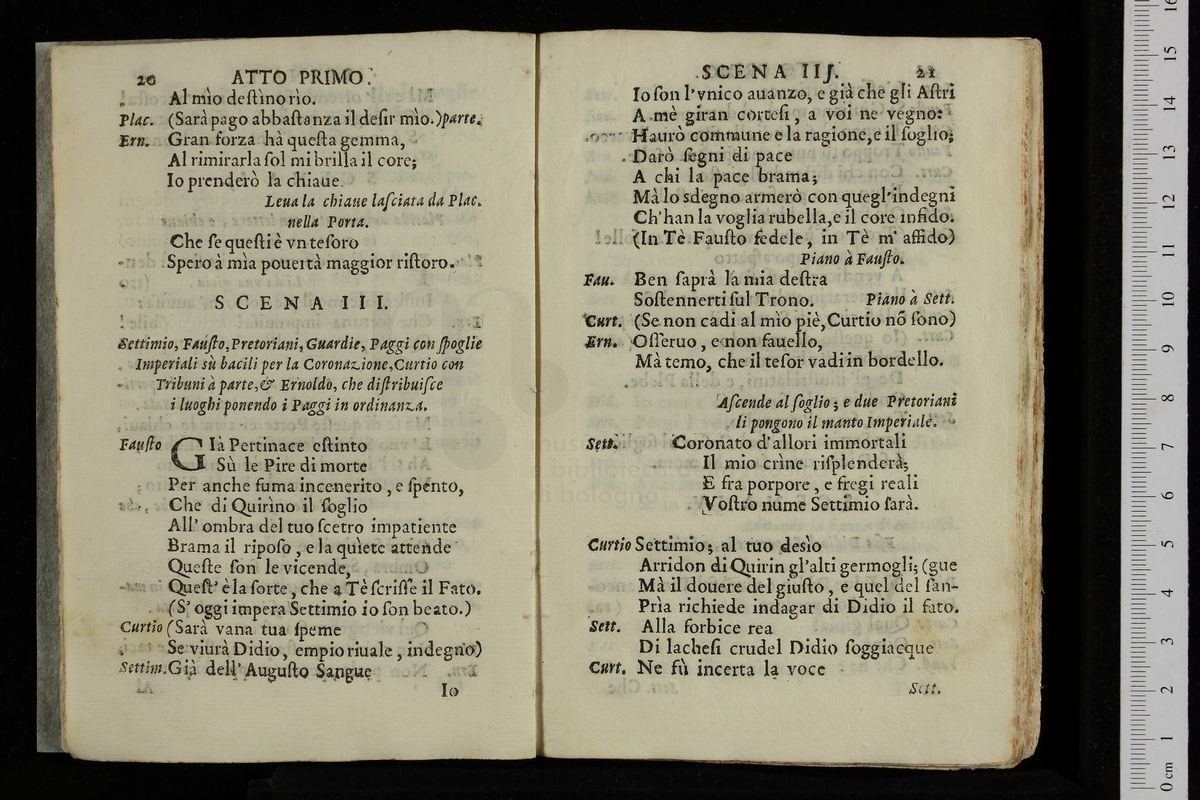 20 ATTO PRIMO.
Al mìo deſtino rìo.
Plac. (Sarà pago abbaſtanza il deſir mìo.) parte.
Ern. Gran forza hà queſta gemma,
Al rimirarla ſol mi brilla il core;
Io prenderò la chiaue.
Leua la chiaue laſciata da Plac.
nella Porta.
Che ſe queſti è vn teſoro
Spero à mìa pouertà maggior riſtoro.
SCENA III.
Settimio, Fauſto, Pretoriani, Guardie, Paggi con ſpoglie
Imperiali sù bacili per la Coronazione, Curtio con
Tribuni à parte, & Ernoldo, che diſtribuiſce
i luoghi ponendo i Paggi in ordinanza.
Fauſto GIà Pertinace eſtinto
Sù le Pire di morte
Per anche fuma incenerito, e ſpento,
Che di Quirìno il ſoglio
All' ombra del tuo ſcetro impatiente
Brama il ripoſo, e la quìete attende
Queſte ſon' le vicende,
Queſt' è la ſorte, che a Tè ſcriſſe il Fato.
(S' oggi impera Settimio io ſon beato.)
Curtio (Sarà vana tua ſpeme
Se viurà Didio, empio riuale, indegno)
Settim. Già dell' Auguſto Sangue
Io
SCENA III. 21
Io ſon l'vnico auanzo, e già che gli Aſtri
A mè giran corteſi, a voi ne vegno:
Haurò commune e la ragione, e il ſoglio;
Darò ſegni di pace
A chi la pace brama;
Mà lo sdegno armerò con quegl'indegni
Ch'han la voglia rubella, e il core infido.
(In Tè Fauſto fedele, in Tè m' affido)
Piano à Fauſto.
Fau. Ben ſaprà la mia deſtra
Soſtennerti ſul Trono. Piano à Sett.
Curt. (Se non cadi al mìo piè, Curtio nõ ſono)
Ern. Oſſeruo, e non fauello,
Mà temo, che il teſor vadi in bordello.
Aſcende al ſoglio; e due Pretoriani
li pongono il manto Imperiale.
Sett. Coronato d'allori immortali
Il mio crìne riſplenderà;
E fra porpore, e fregi reali
Voſtro nume Settimio ſarà.
Curtio Settimio; al tuo desìo
Arridon di Quirin gl'alti germogli; (gue
Mà il douere del giuſto, e quel del ſan-
Prìa richiede indagar di Didio il fato.
Sett. Alla forbice rea
Di lacheſi crudel Didio ſoggiacque
Curt. Ne fù incerta la voce
Sett.